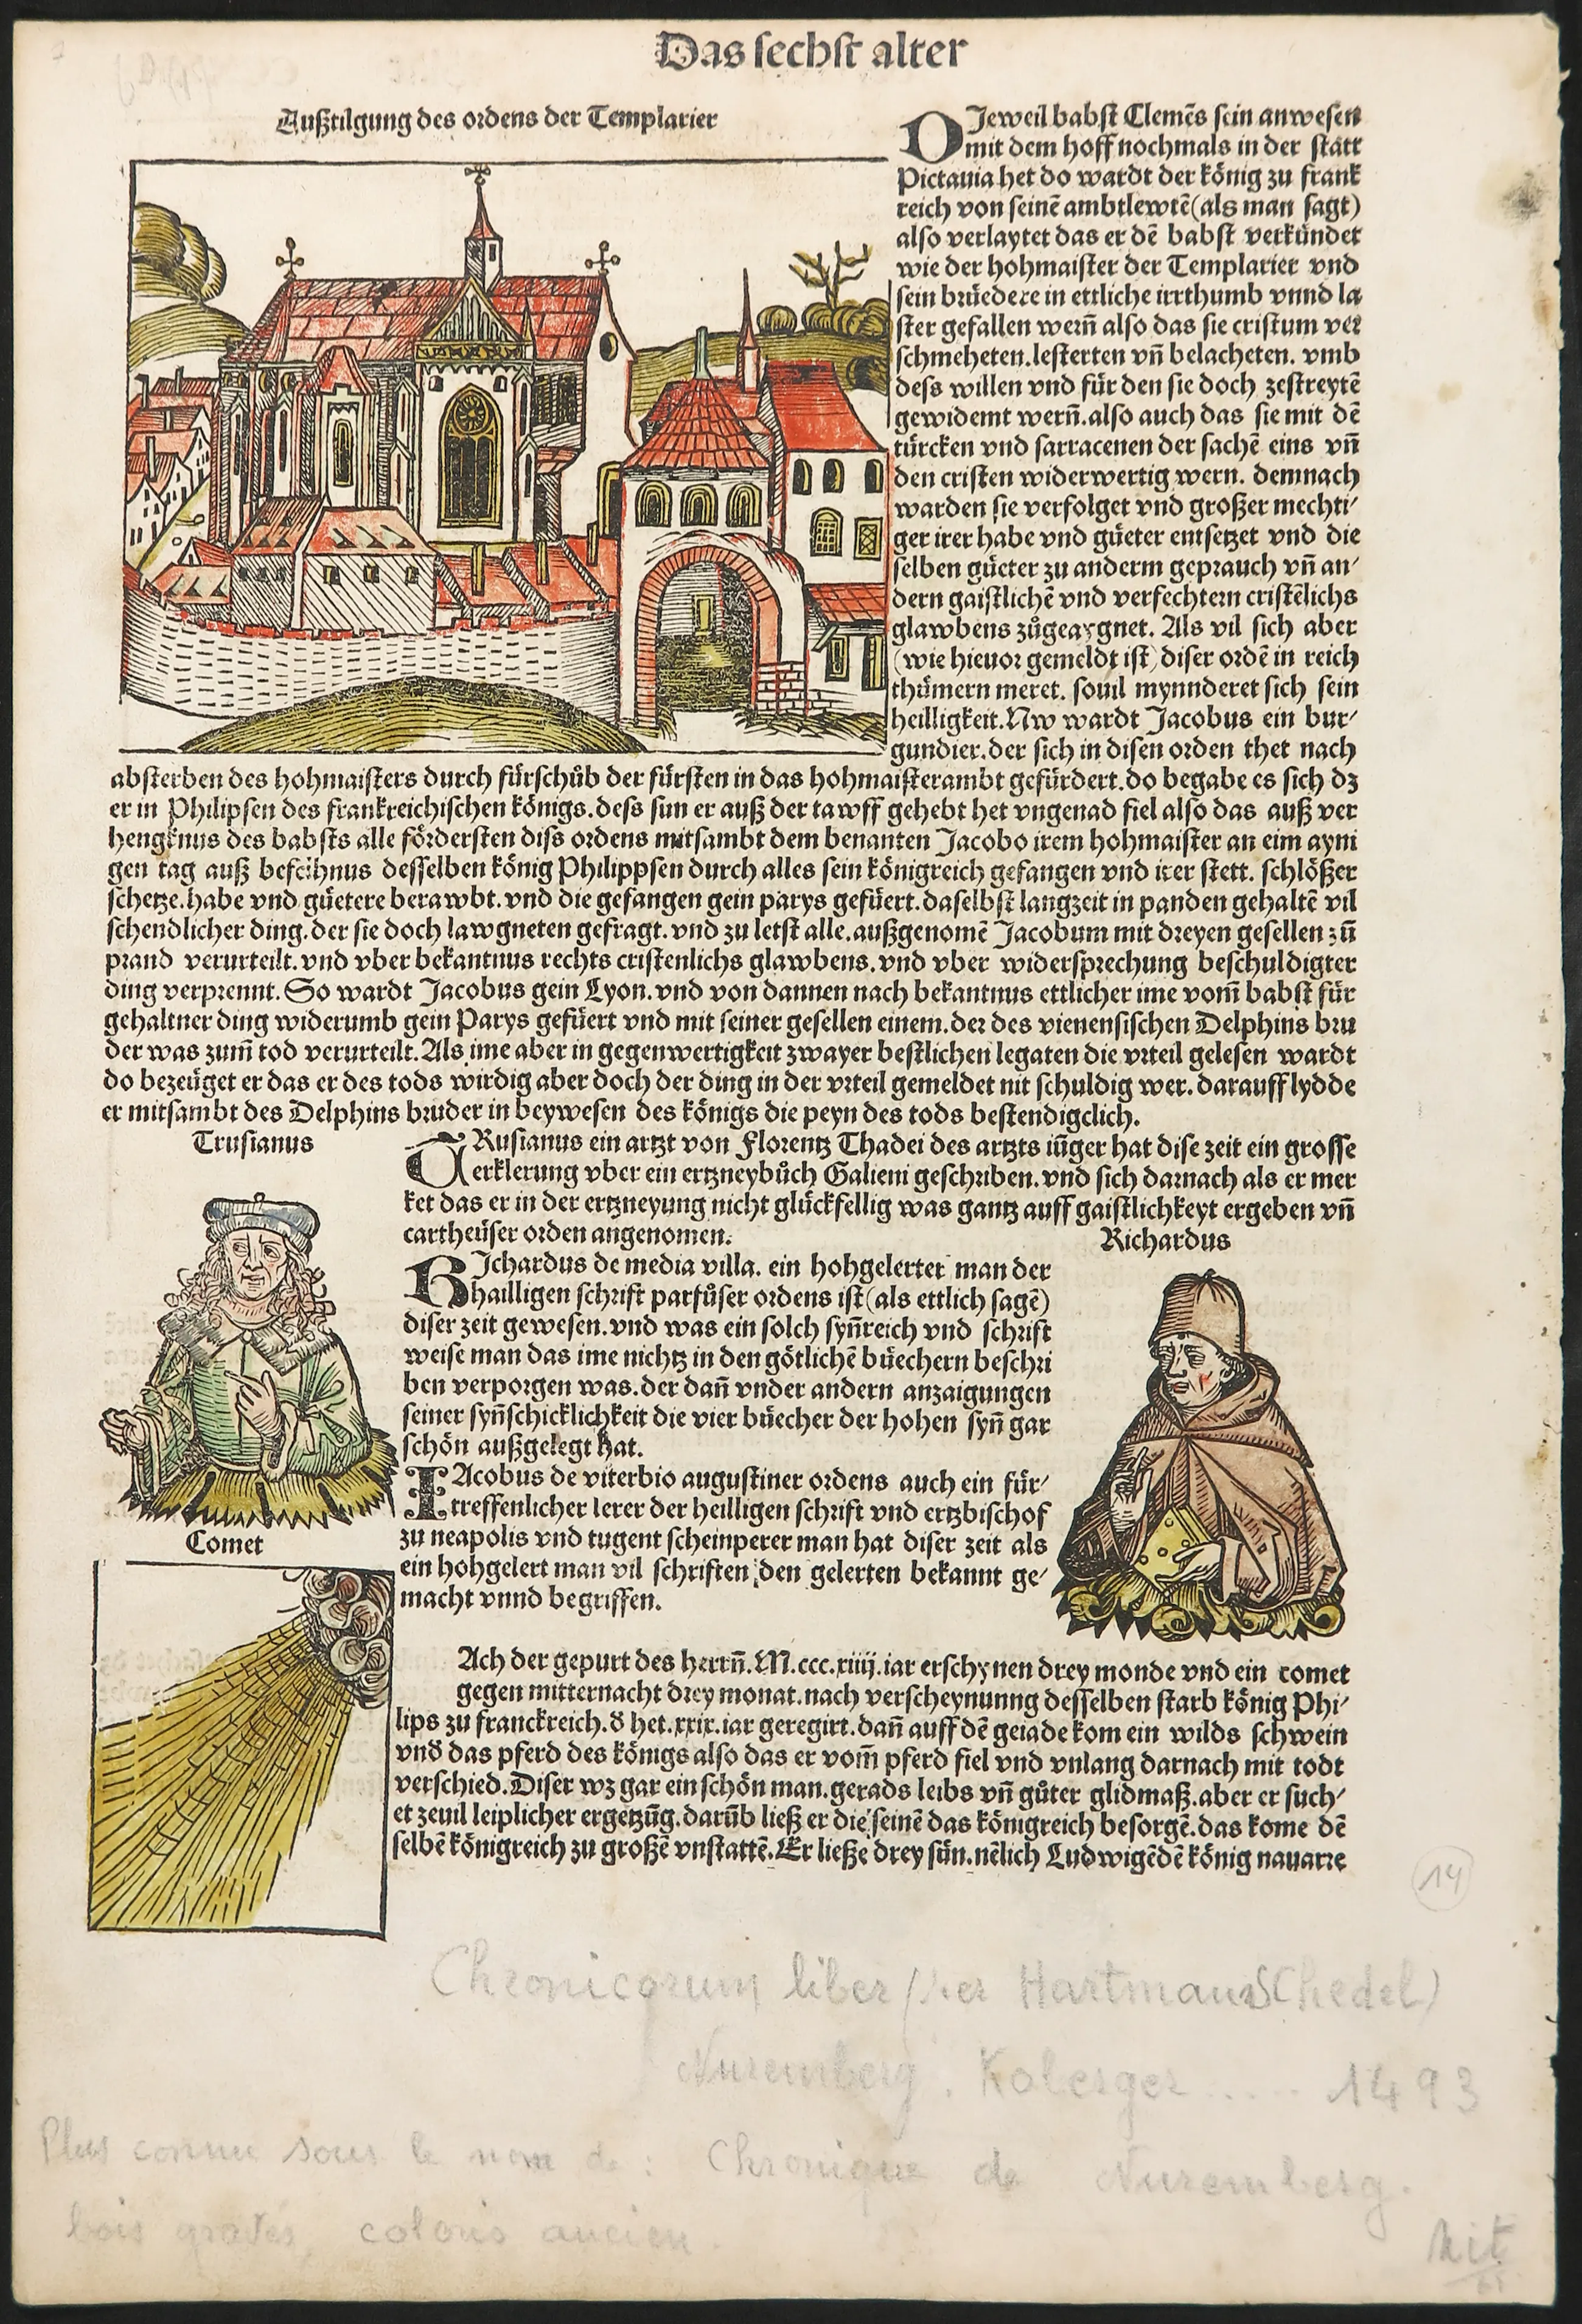 Das sechst alter
Außtilgung des ordens der Templarier
DJeweil babst Clemēs sein anwesen
mit dem hoff nochmals in der statt
Pictauia het do wardt der könig zu frank
reich von seinē ambtlewtē(als man sagt)
also verlaytet das er dē babst verkündet
wie der hohmaister der Templarier vnd
sein brüedere in ettliche irrthumb vnnd la
ster gefallen wern̄ also das sie cristum ver
schmeheten.lesterten vn̄ belacheten. vmb
dess willen vnd für den sie doch zestreytē
gewidemt wern̄.also auch das sie mit dē
türcken vnd sarracenen der sachē eins vn̄
den cristen widerwertig wern. demnach
warden sie verfolget vnd großer mechti/
ger irer habe vnd güeter entsetzet vnd die
selben güeter zu anderm geprauch vn̄ an/
dern gaistlichē vnd verfechtern cristēlichs
glawbens zůgeaygnet. Als vil sich aber
(wie hieuor gemeldt ist) diser ordē in reich
thümern meret. souil mynnderet sich sein
heilligkeit.Nw wardt Jacobus ein bur/
gundier.der sich in disen orden thet nach
absterben des hohmaisters durch fürschůb der fürsten in das hohmaisterambt gefürdert.do begabe es sich dz
er in Philipsen des frankreichischen königs.dess sun er auß der tawff gehebt het vngenad fiel also das auß ver
hengknus des babsts alle fördersten diss ordens mitsambt dem benanten Jacobo irem hohmaister an eim ayni
gen tag auß befelhnus desselben könig Philippsen durch alles sein königreich gefangen vnd irer stett. schlößer
schetze.habe vnd güetere berawbt.vnd die gefangen gein parys gefüert.daselbst langzeit in panden gehaltē vil
schendlicher ding.der sie doch lawgneten gefragt.vnd zu letst alle.außgenomē Jacobum mit dreyen gesellen zū
prand verurteilt.vnd vber bekantnus rechts cristenlichs glawbens.vnd vber widersprechung beschuldigter
ding verprennt. So wardt Jacobus gein Lyon.vnd von dannen nach bekantnus ettlicher ime vom̄ babst für
gehaltner ding widerumb gein Parys gefüert vnd mit seiner gesellen einem.der des vienensischen Delphins bru
der was zum̄ tod verurteilt.Als ime aber in gegenwertigkeit zwayer bestlichen legaten die vrteil gelesen wardt
do bezeüget er das er des tods wirdig aber doch der ding in der vrteil gemeldet nit schuldig wer. darauff lydde
er mitsambt des Delphins bruder in beywesen des königs die peyn des tods bestendigclich.
Trusianus
TRusianus ein artzt von Florentz Thadei des artzts iüger hat dise zeit ein grosse
erklerung vber ein ertzneybůch Galieni geschriben.vnd sich darnach als er mer
ket das er in der ertzneyung nicht glückfellig was gantz auff gaistlichkeyt ergeben vn̄
cartheüser orden angenomen.
Richardus
RJchardus de media villa. ein hohgelerter man der
hailligen schrift parfůser ordens ist(als ettlich sagē)
diser zeit gewesen.vnd was ein solch syn̄reich vnd schrift
weise man das ime nichtz in den götlichē büechern beschri
ben verporgen was.der dan̄ vnder andern anzaigungen
seiner syn̄schicklichkeit die vier büecher der hohen syn̄ gar
schön außgelegt hat.
IAcobus de viterbio augustiner ordens auch ein für/
treffenlicher lerer der heilligen schrift vnd ertzbischof
zu neapolis vnd tugent scheinperer man hat diser zeit als
ein hohgelert man vil schriften den gelerten bekannt ge/
macht vnnd begriffen.
Comet
Ach der gepurt des herrn̄.M.ccc.xiiij.iar erschynen drey monde vnd ein comet
gegen mitternacht drey monat.nach verscheynunng desselben starb könig Phi/
lips zu franckreich.d̄ het.xxix.iar geregirt.dan̄ auff dē geiade kom ein wilds schwein
vnd̄ das pferd des königs also das er vom̄ pferd fiel vnd vnlang darnach mit todt
verschied.Diser wz gar ein schön man.gerads leibs vn̄ gůter glidmaß.aber er such/
et zeuil leiplicher ergetzūg.darūb ließ er die seinē das königreich besorgē.das kome dē
selbē königreich zu großē vnstattē.Er ließe drey sün.nēlich Ludwigēdē könig nauarre
14
Chronicorum liber (per Hartmann Schedel)
Nuremberg. Koberger ..... 1493
Plus connu sous le nom de : Chronique de Nuremberg.
bois gravés, coloris ancien.